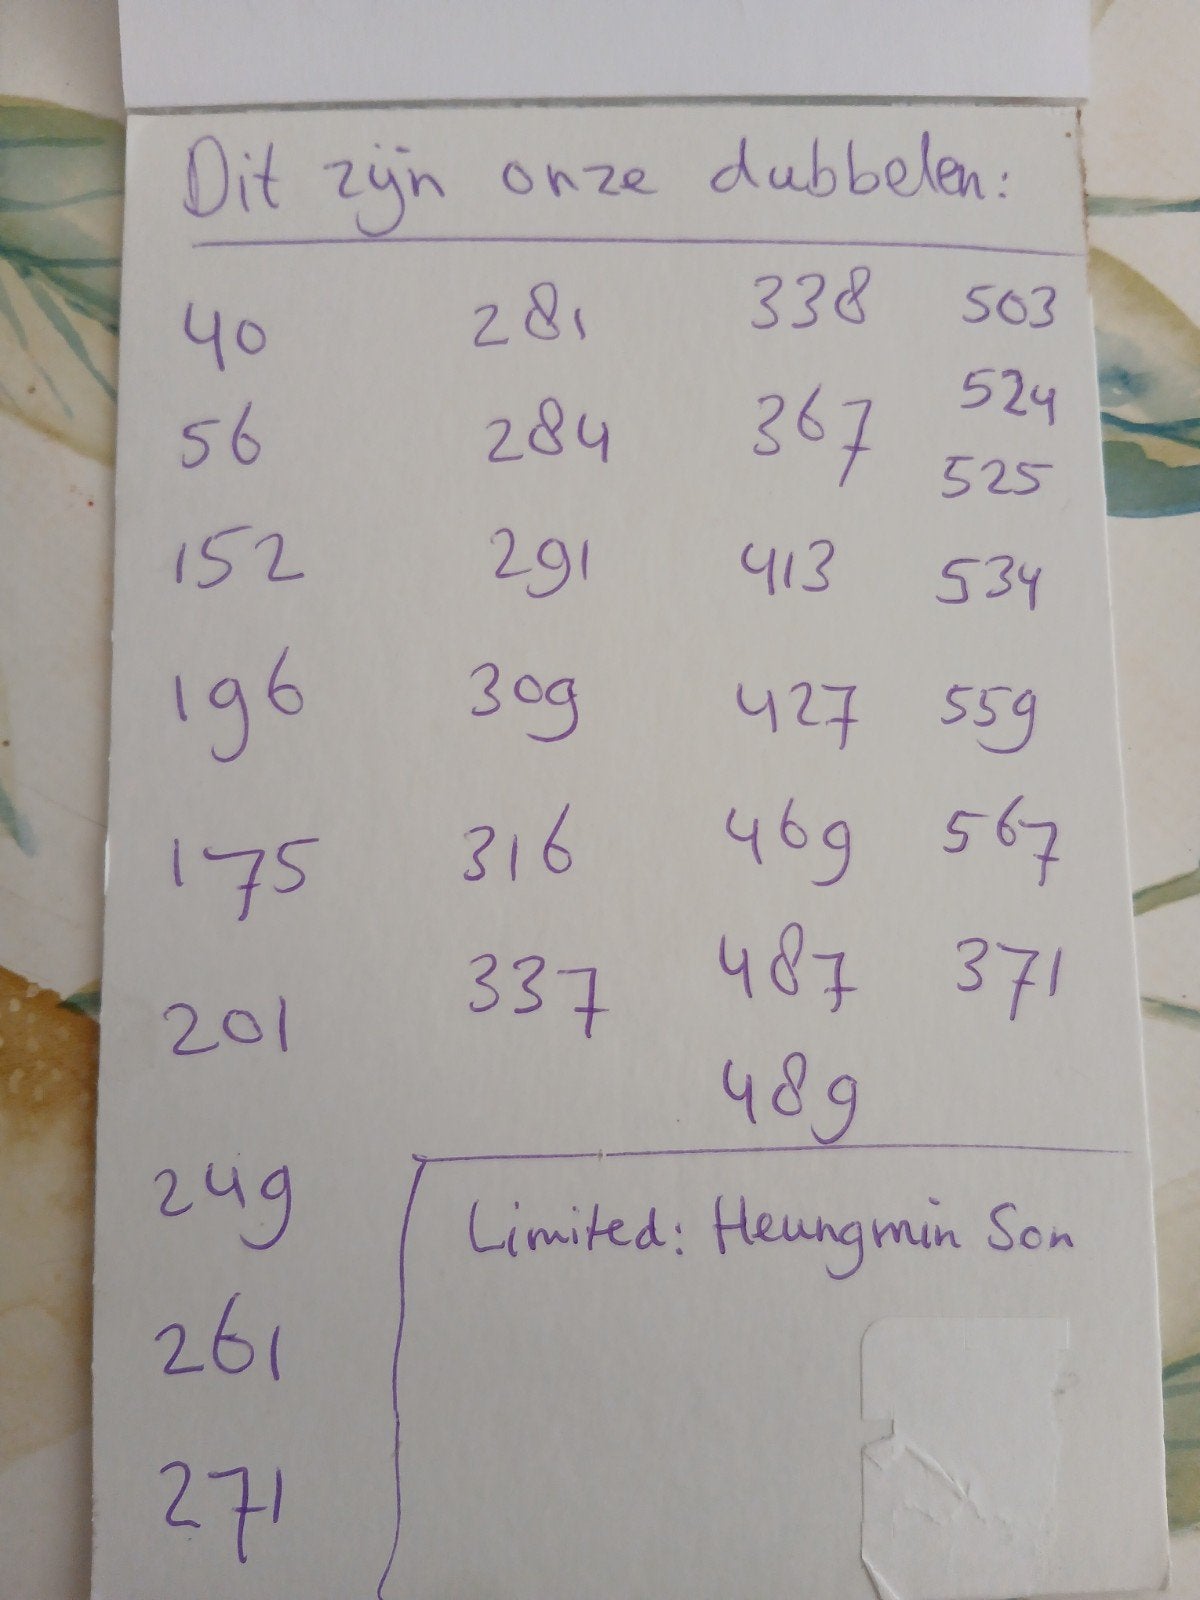 Dit zijn onze dubbelen:
40
56
152
196
175
201
249
261
271
281
284
291
309
316
337
338
367
413
427
469
487
489
503
524
525
534
559
567
371
Limited: Heungmin Son